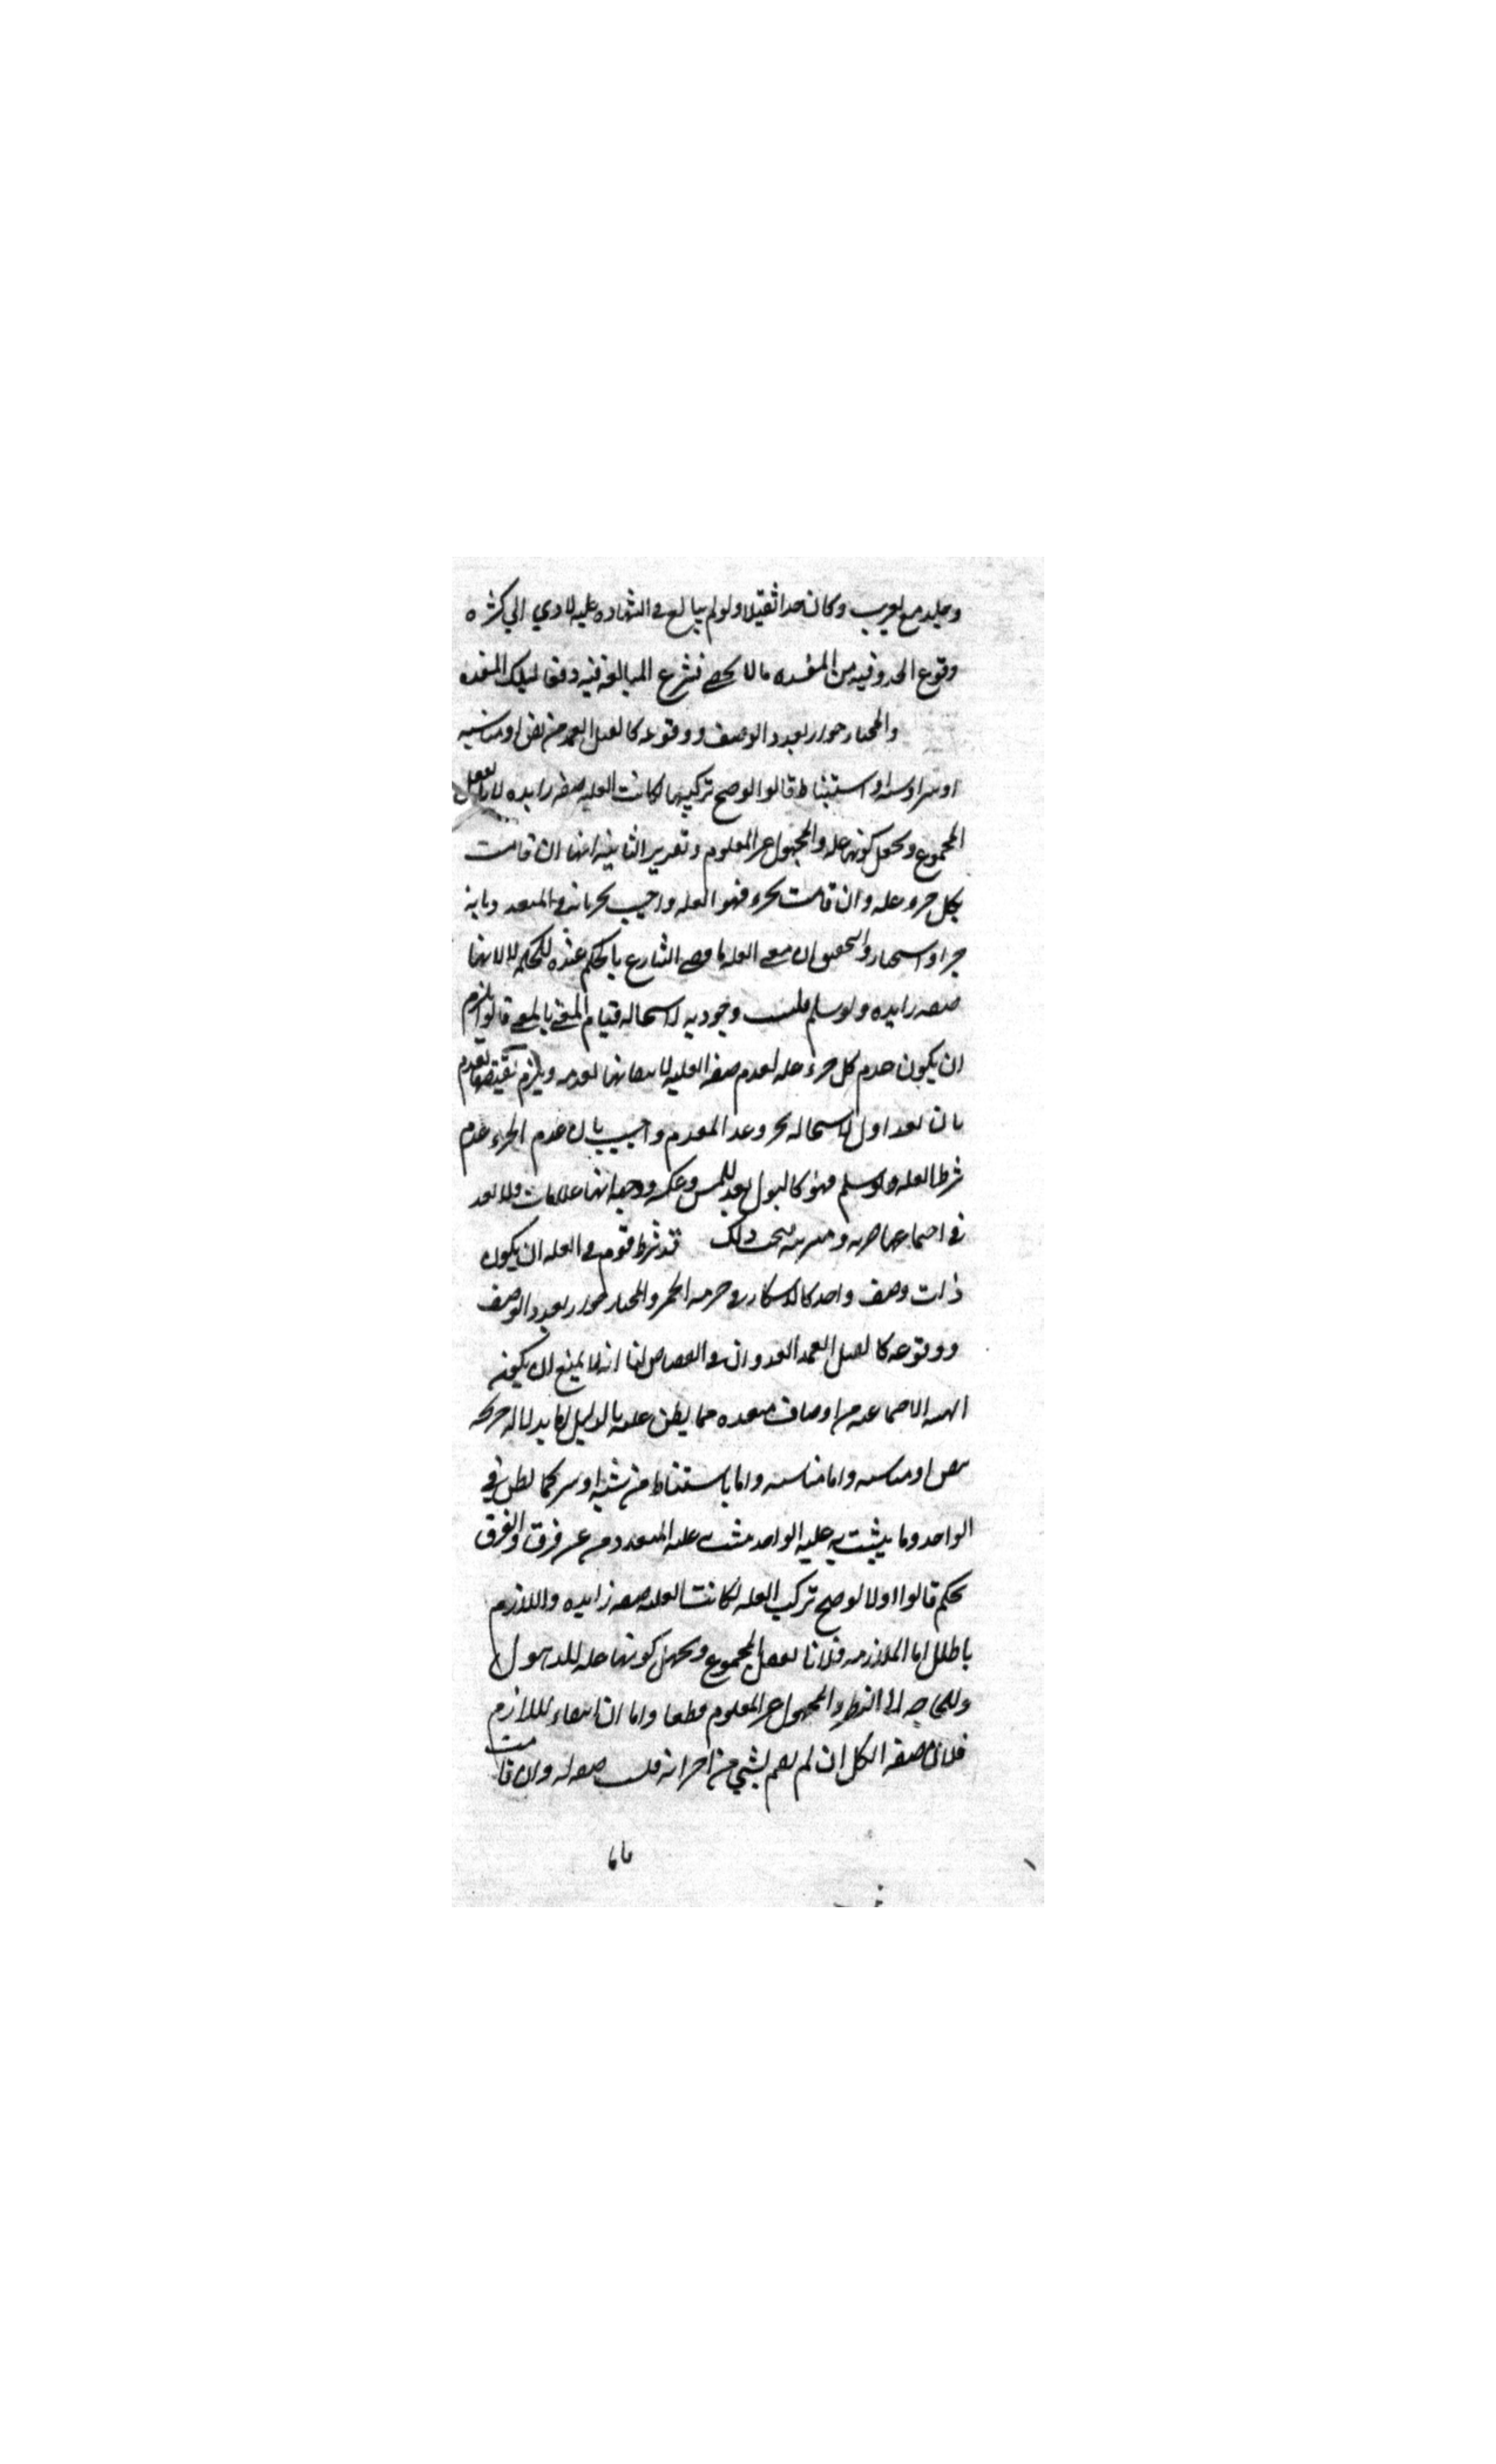 وجلد مع تغريب وكان حدا ثقيلا ولو لم يبالغ في الشهادة عليه لادي الي كثرة
وقوع الحد وفيه من المفسدة ما لا يخفى فشرع المبالغة فيه دفعا لتلك المفسدة
والمختار جواز تعدد الوصف ووقوعه كالقتل العمد من نص او مناسبة
او شبه او سبر او استنباط قالوا لو صح تركيبها لكانت العلية صفة زايدة لانا نعقل
المجموع ونجهل كونها علة والمجهول غير المعلوم وتقرير الثانية انها ان قامت
بكل جزء علة وان قامت بجزء فهو العلة واجيب بجريانه في المتعدد وبانه
خبرا واستخبارا والتحقيق ان معنى العلة ما قضى الشارع بالحكم عنده للحكمة لا لانها
صفة زايدة ولو سلم فليست وجودية لاستحالة قيام المعنى بالمعنى قالوا يلزم
ان يكون عدم كل جزء علة لعدم صفة العلية لانتفائها بعدمه ويلزم نقيضها بعدم
بان بعد اول لاستحالة تجدد عدم العدم واجيب بان عدم الجزء عدم
شرط العلة ولو سلم فهو كالبول بعد اللمس وعكسه ووجهه انها علامات ولا بعد
في اجتماعها ضربة ومترتبة فيجب ذلك قد شرط قوم في العلة ان يكون
ذات وصف واحد كالاسكار في حرمة الخمر والمختار جواز تعدد الوصف
ووقوعه كالقتل العمد العدوان في القصاص لنا انه لا يمتنع ان يكون
الهيئة الاجتماعية من اوصاف متعددة مما يظن عليته بالدليل اما بدلالة صريحة
بنص او مناسبة واما باستنباط من شبه او سبر كما يظن في
الواحد وما يثبت به علية الواحد يثبت علية المتعدد من غير فرق والفرق
تحكم قالوا اولا لو صح تركب العلة لكانت العلية صفة زايدة واللازم
باطل اما الملازمة فلانا نعقل المجموع ونجهل كونها علة للذهول
وللحاجة الى النظر والمجهول غير المعلوم قطعا واما انتفاء اللازم
فلان صفة الكل ان لم يقم بشي من اجزائه فليست صفة له وان قامت